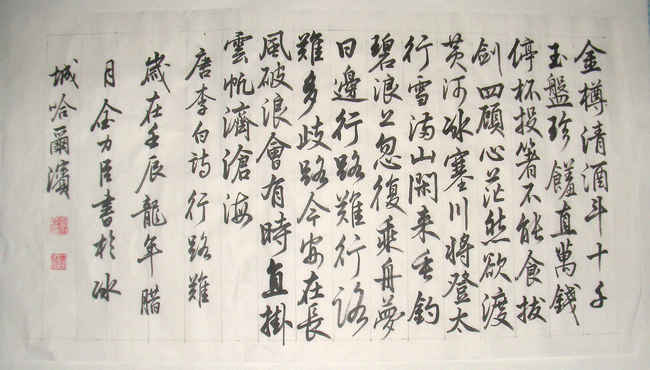 金樽清酒斗十千
玉盤珍饈直萬錢
停杯投箸不能食拔
劍四顧心茫然欲渡
黄河冰塞川將登太
行雪满山閑来垂釣
碧浪上忽復乘舟夢
日邊行路難行路
難多歧路今安在長
風破浪會有時直掛
雲帆濟滄海
唐李白詩行路難
歲在壬辰龍年腊
月全力臣書於冰
城哈爾濱